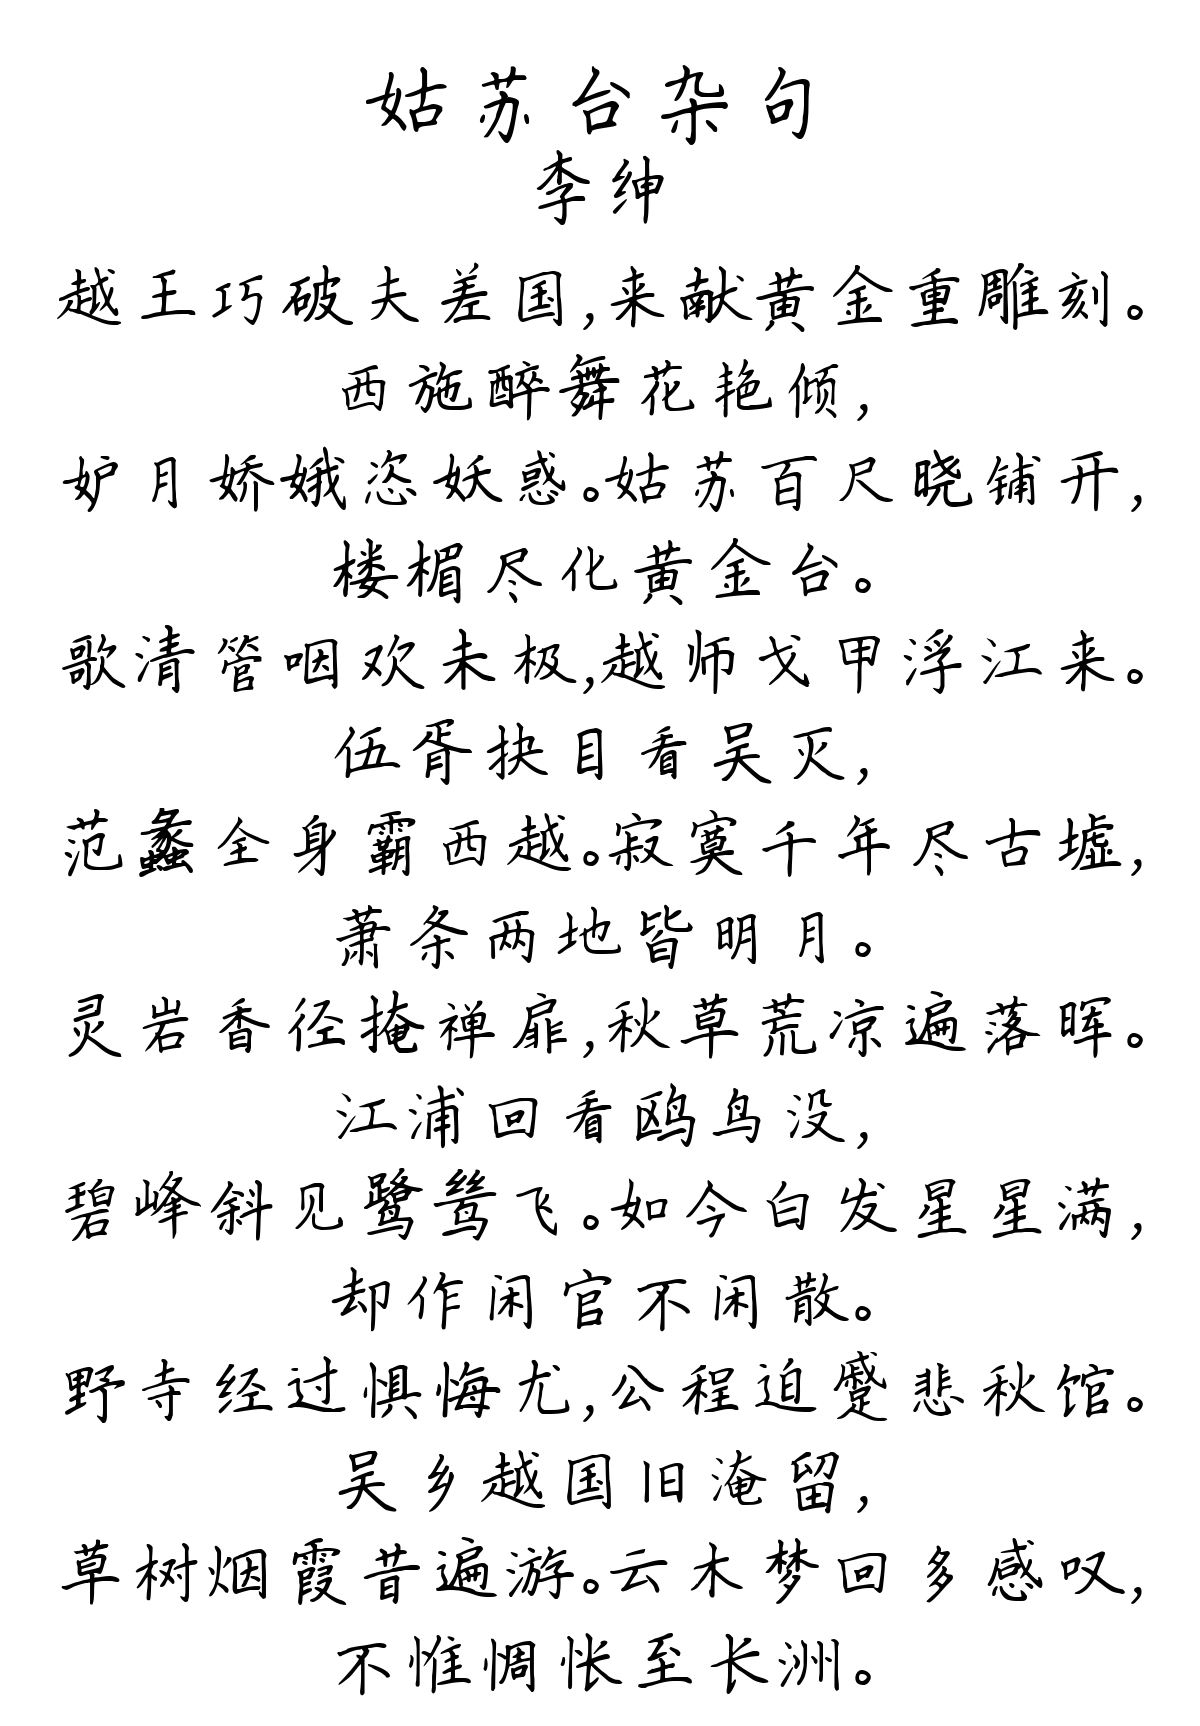 姑苏台杂句
李绅
越王巧破夫差国,来献黄金重雕刻。
西施醉舞花艳倾,
妒月娇娥恣妖惑。姑苏百尺晓铺开,
楼楣尽化黄金台。
歌清管咽欢未极,越师戈甲浮江来。
伍胥抉目看吴灭,
范蠡全身霸西越。寂寞千年尽古墟,
萧条两地皆明月。
灵岩香径掩禅扉,秋草荒凉遍落晖。
江浦回看鸥鸟没,
碧峰斜见鹭鸶飞。如今白发星星满,
却作闲官不闲散。
野寺经过惧悔尤,公程迫蹙悲秋馆。
吴乡越国旧淹留,
草树烟霞昔遍游。云木梦回多感叹,
不惟惆怅至长洲。